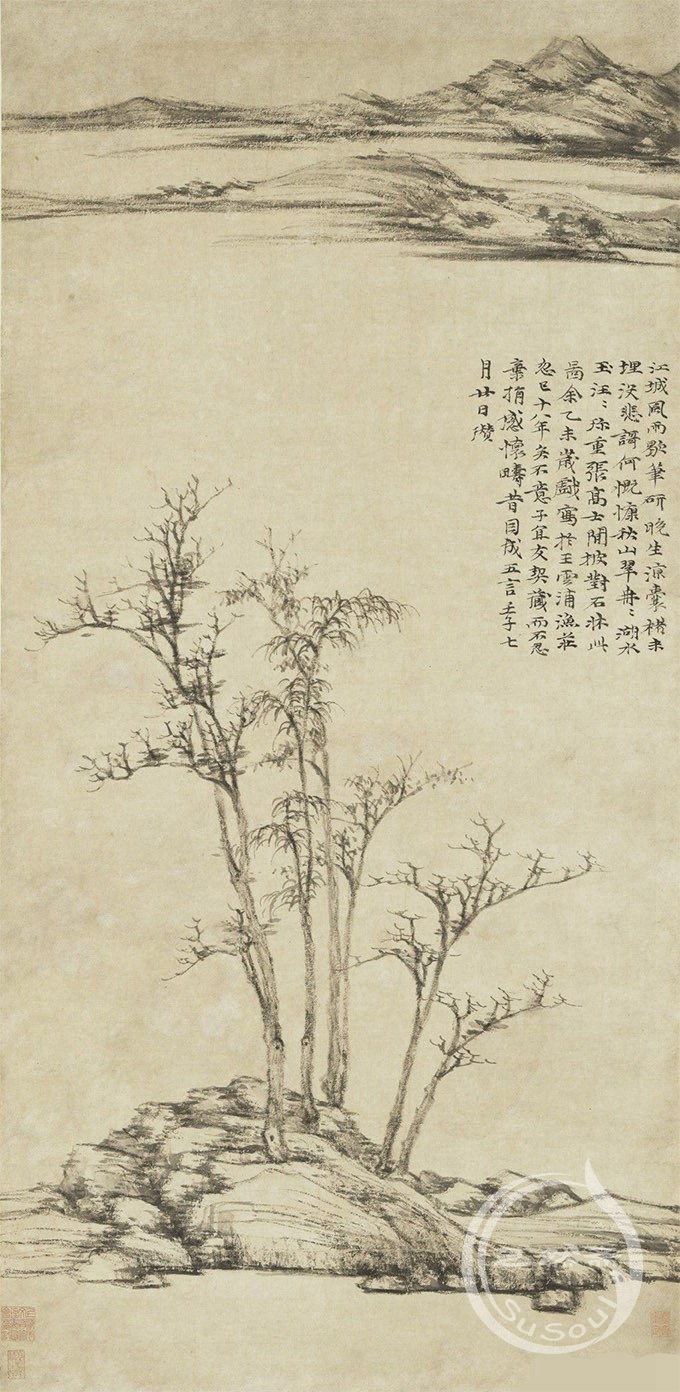 江城風雨歇筆研晚生涼囊楮未
埋沒悲謌何慨慷秋山翠冉〻湖水
玉汪〻珎重張高士閒披對石牀此
圖余乙未歲戲寫於王雲浦漁莊
忽已十八年矣不意子宜友契藏而不忍
棄捐感懷疇昔因成五言壬子七
月廿日瓚
SuSoul